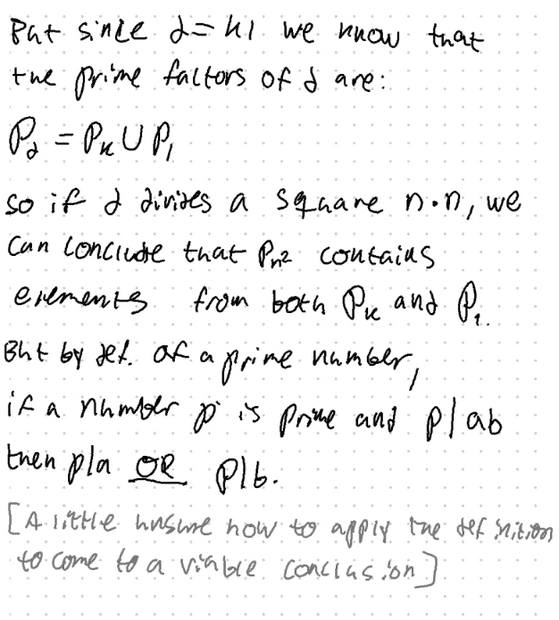 But since d = kl we know that
the prime factors of d are:
P_d = P_k ∪ P_l
so if d divides a square n·n, we
can conclude that P_n² contains
elements from both P_k and P_l.
But by def. of a prime number,
if a number p is prime and p|ab
then p|a OR p|b.
[A little unsure how to apply the definition
to come to a viable conclusion]